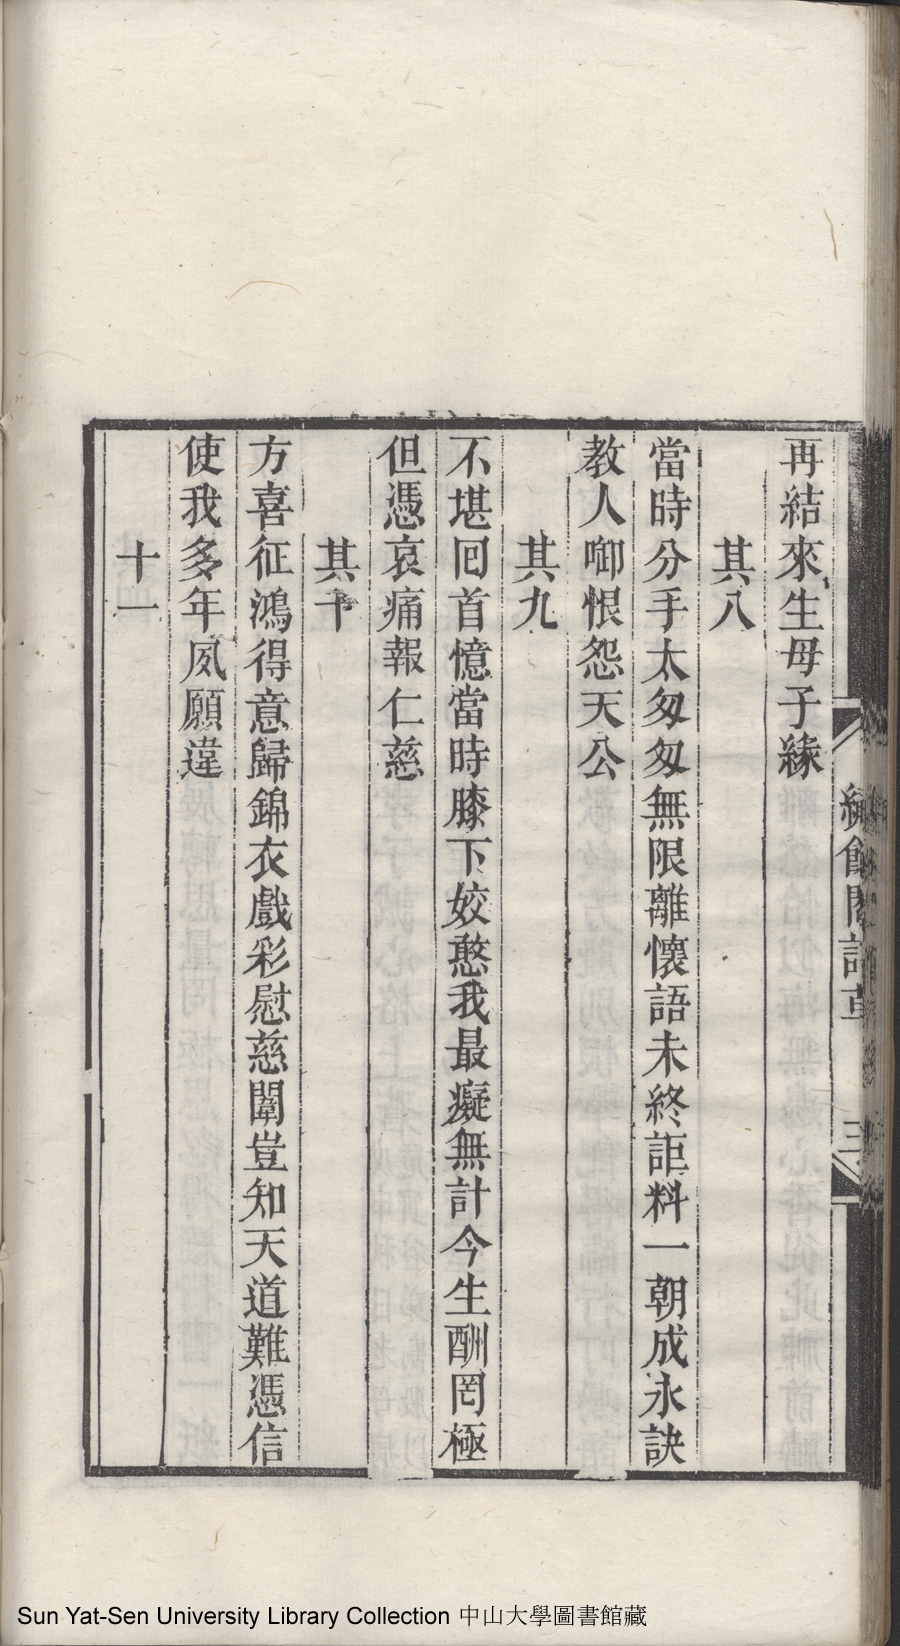 再結來生母子緣
其八
當時分手太匆匆無限離懷語未終詎料一朝成永訣
教人啣恨怨天公
其九
不堪回首憶當時膝下姣憨我最癡無計今生酬罔極
但憑哀痛報仁慈
其十
方喜征鴻得意歸錦衣戲彩慰慈闈豈知天道難憑信
使我多年夙願違
十一
餘閣詩草
三
Sun Yat-Sen University Library Collection 中山大學圖書館藏